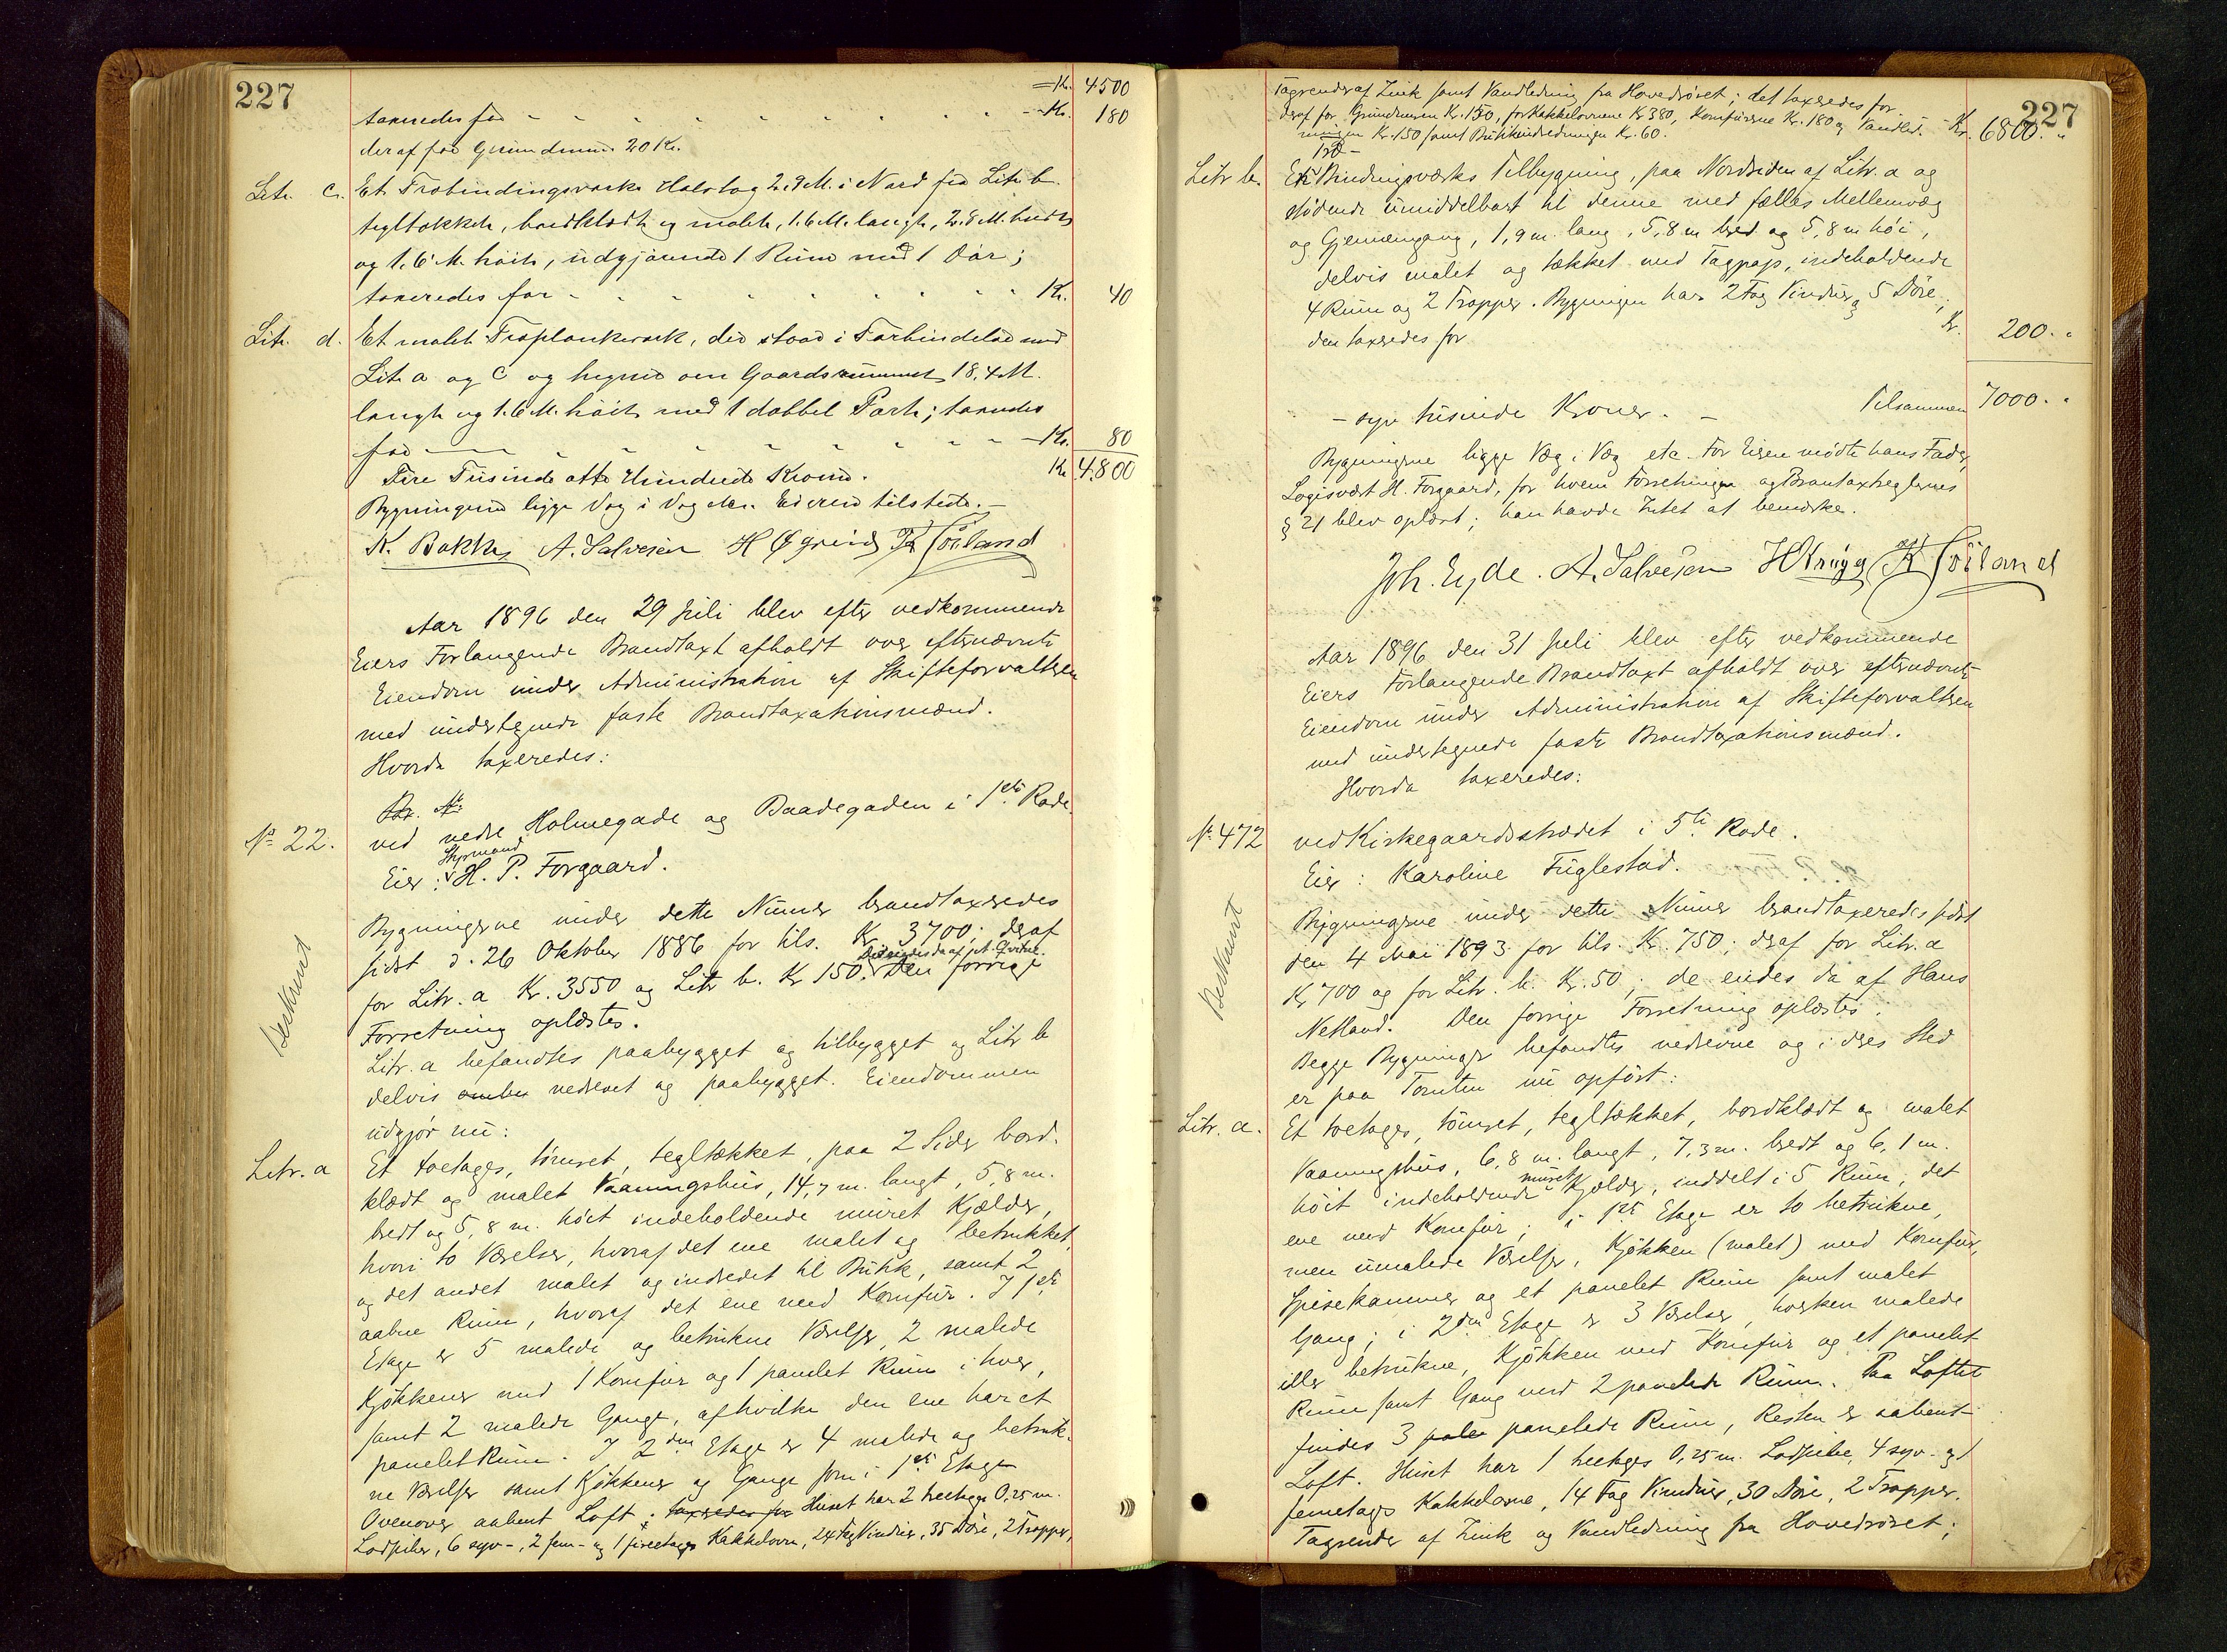 227
= Kr. 4500
taxeredes for - - - - - - - - - - Kr. 180
deraf for Grundmuren 20 Kr.
Litr. c. Et Træbindingsværks Halvtag 2.9 M. i Nord fra Litr. b.
tegltækket, bordklædt og malet, 1.6 M. langt, 2.8 M. bredt
og 1.6 M. høit, udgjørende 1 Rum med 1 Dør;
taxeredes for - - - - - - - - - Kr. 40
Litr. d. Et malet Træplankeværk, der staar i Forbindelse med
Litr. a og c og hegner om Gaardsrummet 18,4 M.
langt og 1.6 M. høit med 1 dobbel Port; taxeredes
for - - - - - - - - - Kr. 80
Fire Tusinde otte Hundrede Kroner. Kr. 4,800
Bygningerne ligge Væg i Væg etc. Eieren tilstede. -
K. Bakke A. Salvesen H Øgreid K Soiland
Aar 1896 den 29 Juli blev efter vedkommende
Eiers Forlangende Brandtaxt afholdt over efternævnte
Eiendom under Administration af Skifteforvalteren
med undertegnede faste Brandtaxationsmænd.
Hvorda taxeredes:
Br. No
No 22. ved nedre Holmegade og Baadegaden i 1ste Rode.
Skipmand
Eier: H. P. Forgaard.
Bygningerne under dette Numer brandtaxeredes
sidst d. 26 Oktober 1886 for tils. Kr. 3700; deraf
for Litr. a Kr. 3550 og Litr b. Kr 150. Den forrige
Forretning oplæstes.
Beskaaret
Litr. a befandtes paabygget og tilbygget og Litr b
delvis ombn nedrevet og paabygget. Eiendommen
udgjør nu:
Litr. a Et toetages, tømret, tegltækket, paa 2 Sider bord-
klædt og malet Vaaningshus, 14,7 m. langt, 5,8 m.
bredt og 5,8 m. høit indeholdende muret Kjælder,
hvori to Værelser, hvoraf det ene malet og betrukket,
og det andet malet og indredet til Butik, samt 2
aabne Rum, hvoraf det ene med Komfur. I 1ste
Etage er 5 malede og betrukne Værelser, 2 malede
Kjøkkener med 1 Komfur og 1 panelet Rum i hver,
samt 2 malede Gange, af hvilke den ene har et
panelet Rum. I 2den Etage er 4 malede og betruk-
ne Værelser samt Kjøkkener og Gange som i 1ste Etage
Ovenover aabent Loft. taxeredes for Huset har 2 treetages 0,25 m.
Lodpiber, 6 syv-, 2 fem- og 1 fireetages Kakkelovn, 24 Fag Vinduer, 35 Døre, 2 Trapper,
227
Tagrender af Zink samt Vandledning fra Hovedrøret; det taxeredes for
deraf for Grundmuren Kr. 150, for Kakkelovnene Kr 380, Komfurerne Kr. 180 og Vandled-
ningen Kr. 150 samt Butikindredningen Kr. 60. - Kr. 6800. "
Litr b. En Bindingsværks Tilbygning, paa Nordsiden af Litr. a og
stødende umiddelbart til denne med fælles Mellemvæg
og Gjennemgang, 1,9 m lang, 5,8 m bred og 5,8 m høi,
delvis malet og tækket med Tagpap, indeholdende
4 Rum og 2 Trapper. Bygningen har 2 Fag Vinduer og 5 Døre;
den taxeredes for Kr. 200. "
- syv tusinde Kroner. - Tilsammen 7000. "
Bygningerne ligge Væg i Væg etc. For Eieren mødte hans Fader,
Logisvært H. Forgaard, for hvem Forretningen og Brantaxtreglernes
§ 21 blev oplæst; han havde Intet at bemærke.
Joh. Eyde. A. Salvesen K Soiland
Aar 1896 den 31 Juli blev efter vedkommende
Eiers Forlangende Brandtaxt afholdt over efternævnte
Eiendom under Administration af Skifteforvalteren
med undertegnede faste Brandtaxationsmænd.
Hvorda taxeredes:
No 472 ved Kirkegaardsstrædet i 5te Rode.
Eier: Karoline Fuglestad.
Bygningerne under dette Numer brandtaxeredes sidst
den 4 Mai 1893 for tils. Kr. 750; deraf for Litr. a
Kr 700 og for Litr. b. Kr. 50; de eiedes da af Hans
Netland. Den forrige Forretning oplæstes.
Beskaaret
Begge Bygninger befandtes nedrevne og i deres Sted
er paa Tomten nu opført:
Litr. a. Et toetages, tømret, tegltækket, bordklædt og malet
Vaaningshus, 6,8 m. langt, 7,3 m. bredt og 6,1 m.
høit indeholdende muret Kjælder, inddelt i 5 Rum, det
ene med Komfur; i 1ste Etage er to betrukne,
men umalede Værelser, Kjøkken (malet) med Komfur,
Spisekammer og et panelet Rum samt malet
Gang; i 2den Etage er 3 Værelser, hverken malede
eller betrukne, Kjøkken med Komfur og et panelet
Rum samt Gang med 2 panelede Rum. Paa Loftet
findes 3 pale panelede Rum, Resten er aabent
Loft. Huset har 1 treetages 0,25 m. Lodpibe, 4 syv- og 1
femetages Kakkelovne, 14 Fag Vinduer, 30 Døre, 2 Trapper.
Tagrender af Zink og Vandledning fra Hovedrøret;